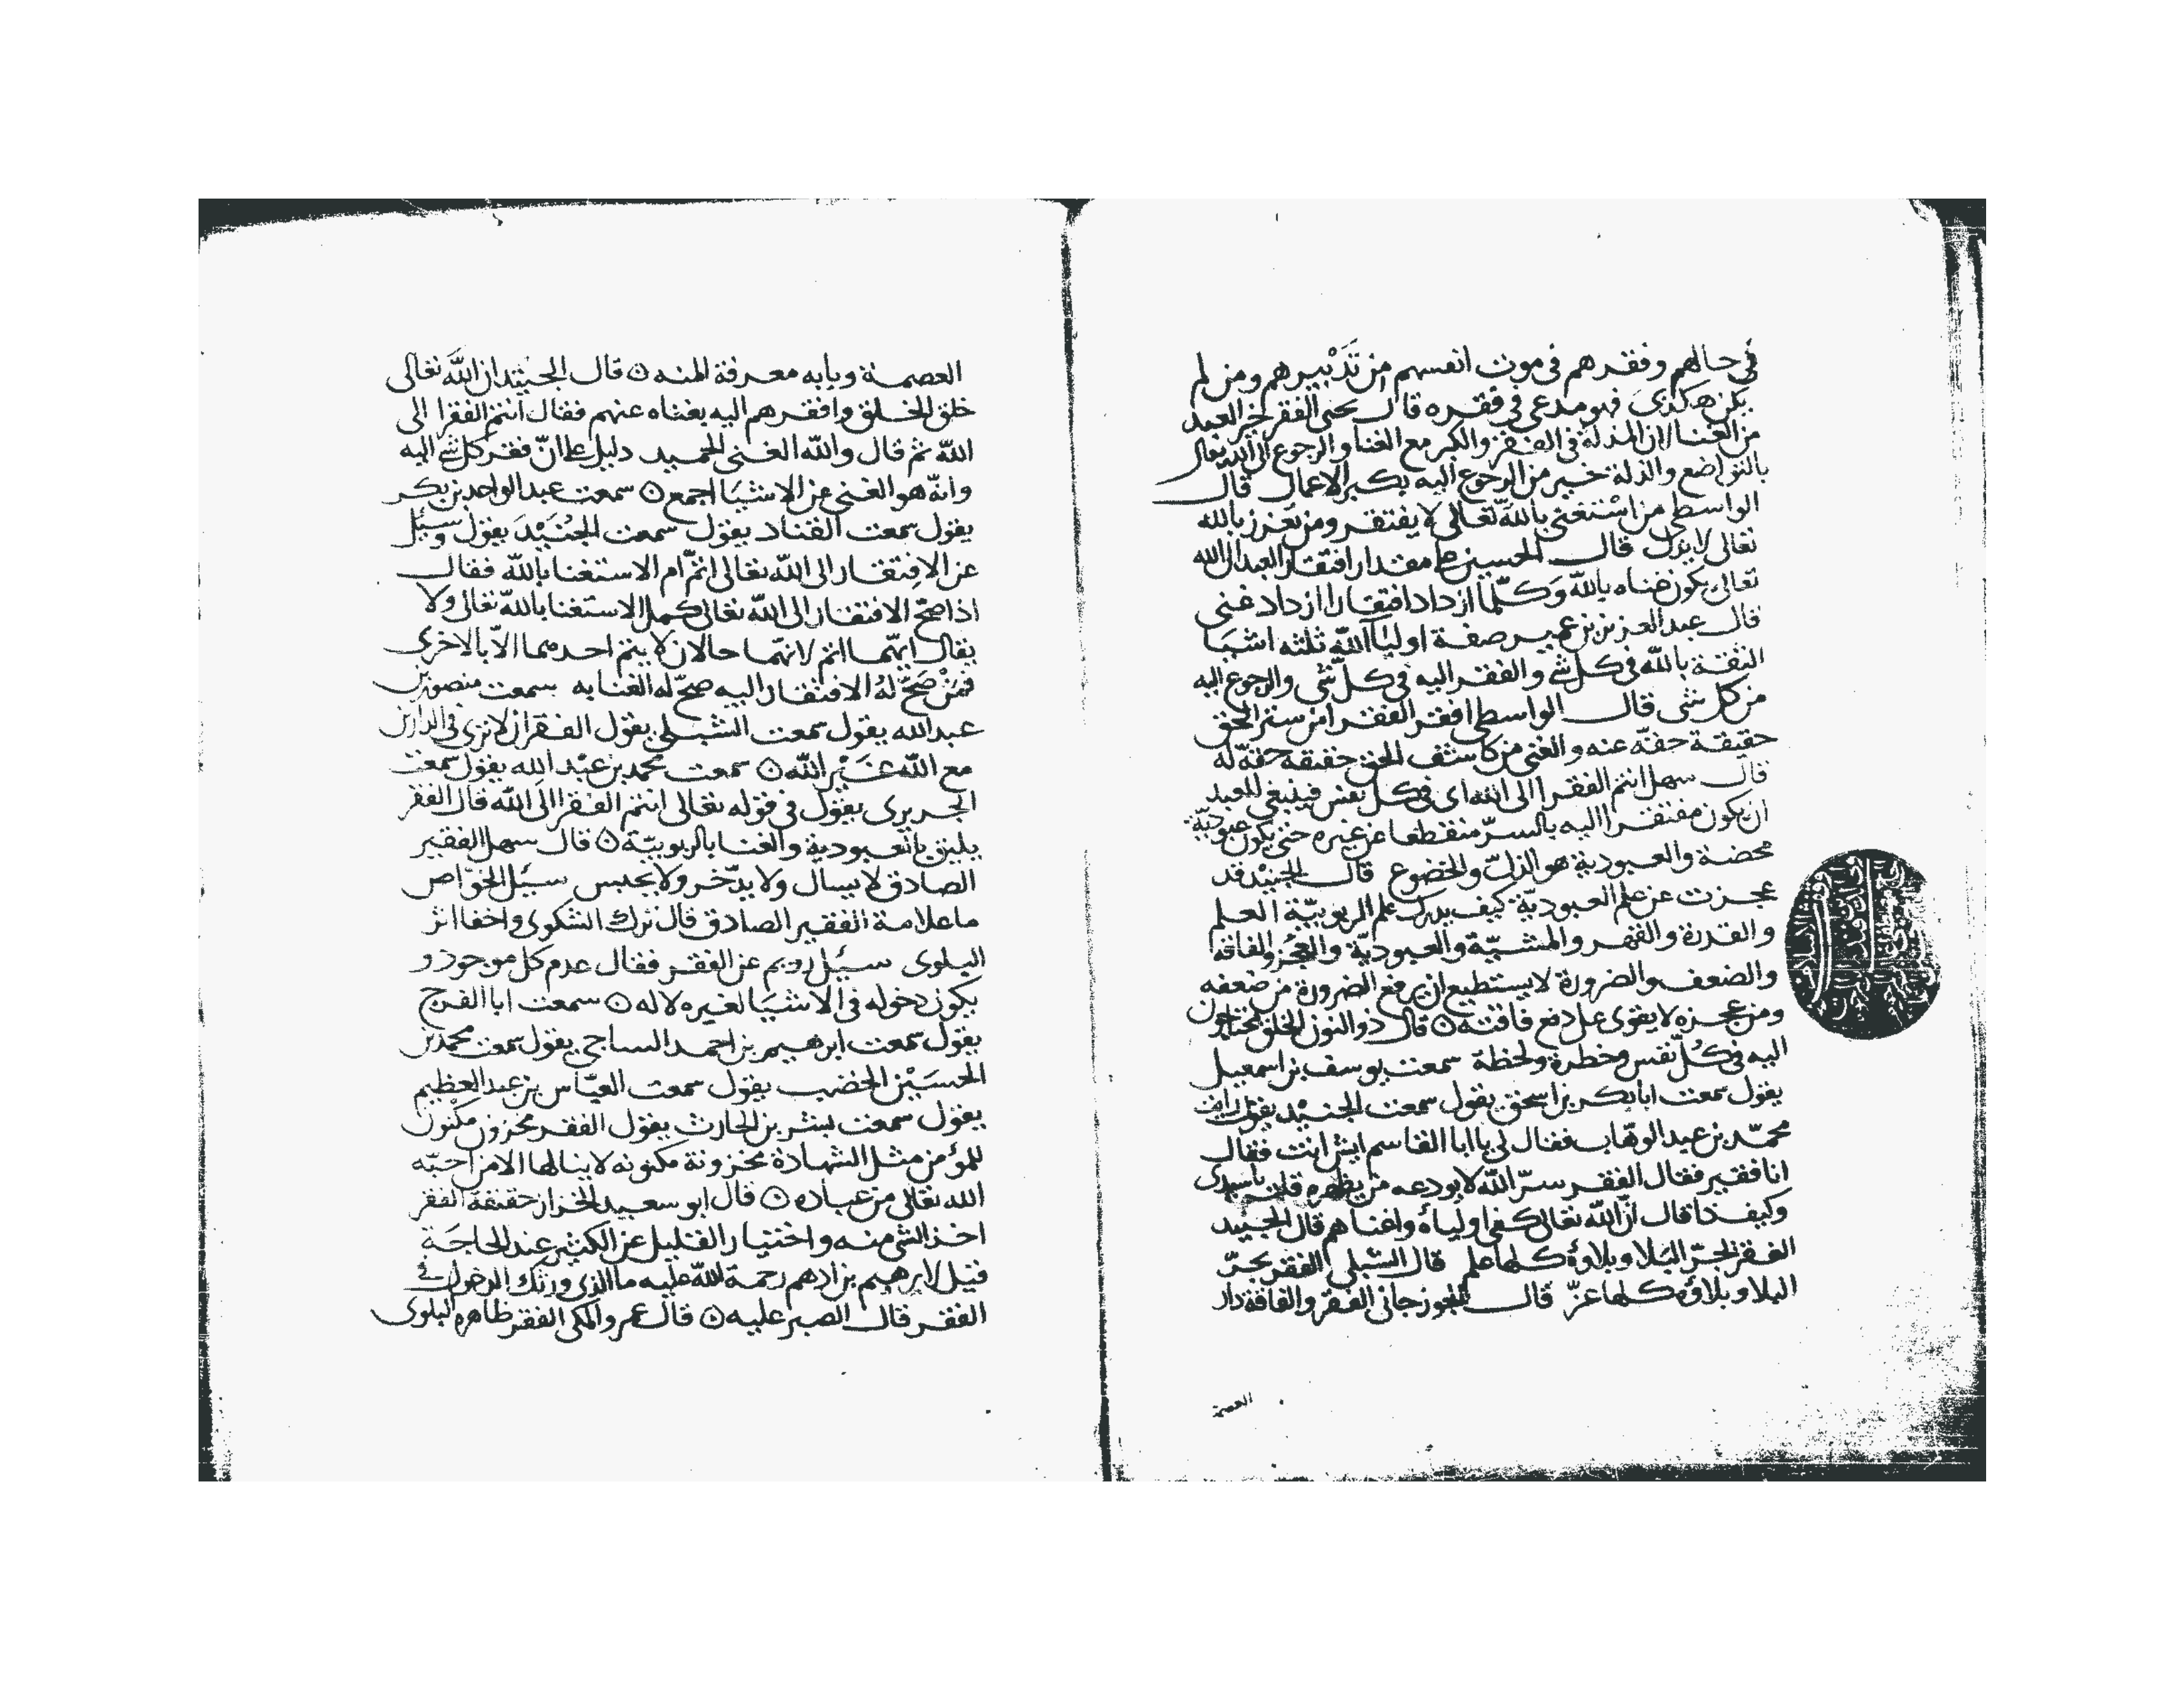 في حالهم وفقرهم في موت انفسهم من تَدْبيرهم ومن لم
يكن هكذى فهو مدعى في فقره قال يحيى الفقر خير العبد
من الغنا لان المذلة في الفقر والكبر مع الغنا والرجوع الى الله تعالى
بالتواضع والذلة خير من الرجوع اليه بكبر الاعمال قال
الواسطى من استغنى بالله تعالى لا يفتقر ومن تعزز بالله
تعالى لا يذل قال الحسين على مقدار افتقار العبد الى الله
تعالى يكون غناه بالله وكلّما ازداد افتقارا ازداد غنى
قال عبد العزيز بن عمير صفة اوليآ الله ثلثه اشيا
الثقة بالله في كل شي والفقر اليه في كل شي والرجوع اليه
من كل شى قال الواسطى افقر الفقرا من ستر الحق
حقيقة حقّه عنه والغنى من كاشف الحق حقيقة حقّه له
قال سهل انتم الفقرا الى الله اى في كل نفس فينبغى للعبد
ان يكون مفتقرا اليه بالسرّ منقطعا عن غيره حتى يكون عبوديّة
محضة والعبودية هو الذلّ والخضوع قال الجنيْد قد
عجزت عن علم العبوديّة كيف يدرك علم الربوبيّة العلم
والقدرة والقهر والمشيّة والعبوديّة والعجز والفاقة
والضعف والضرورة لا يستطيع ان يرفع الضرورة من ضعفه
ومن عجزه لا يقوى على دفع فاقته ٥ قال ذو النون الخلق محتاجون
اليه في كُلّ نفس وخطرة ولحظة سمعت يوسف بن اسمعيل
يقول سمعت ابا بكر بن اسحق يقول سمعت الجنيْد يقول رايت
محمّد بن عبد الوهّاب فقال لى يا ابا القاسم ايش انت فقال
انا فقير فقال الفقر سرّ الله لا يودعه من يظهره قلت يا سيدى
وكيف ذا قال انّ الله تعالى كفى اولياءه واغناهم قال الجنيد
الفقر بحرّ البَلا وبلاؤه كلها علم قال الشبلى الفقر بحرّ
البلا وبلاؤه كلها عزّ قال الجوزجانى الفقر والفاقة دار
العصمة
العصمة وبابه معرفة المنه ٥ قال الجنيد ان الله تعالى
خلق الخلق وافقرهم اليه بغناه عنهم فقال انتم الفقرا الى
الله ثم قال والله الغنى الحميد دليل على انّ فقر كل شي اليه
وانّه هو الغنى عن الاشيَا اجمع ٥ سمعت عبد الواحد بن بكر
يقول سمعت القناد يقول سمعت الجُنَيْدَ يقول وسيُل
عن الافتقار الى الله تعالى اتمّ ام الاستغنا بالله فقال
اذا صحّ الافتقار الى الله تعالى كمل الاستغنا بالله تعالى ولا
يقال ايّهما اتم لانّهما حالان لا يتم احدهما الاّ بالاخرى
فمَنْ صَحَّ لهُ الافتقار اليه صحّ له الغنا به سمعت منصور بن
عبد الله يقول سمعت الشبلى يقول الفقر ان لا ترى في الدارين
مع الله غَيْر الله ٥ سمعت محمد بن عبْد الله يقول سمعت
الجريرى يقول في قوله تعالى انتم الفقرا الى الله قال الفقر
يليق بالعبودية والغنا بالربوبيّة ٥ قال سهل الفقير
الصادق لا يسال ولا يدّخر ولا يحبس سيُل الخوّاص
ما علامة الفقير الصادق قال ترك الشكوى واخفا اثر
البلوى سيُل رويم عن الفقر فقال عدم كل موجود و
يكون دخوله في الاشيَا لغيره لا له ٥ سمعت ابا الفرج
يقول سمعت ابرهيم بن احمد الساجى يقول سمعت محمد بن
الحسَيْن الخضب يقول سمعت العبّاس بن عبد العظيم
يقول سمعت بشر بن الحارث يقول الفقر مخزون مكنون
للمؤمن مثل الشهادة مخزونة مكنونه لا ينالها الا من احبّه
الله تعالى من عباده ٥ قال ابو سعيد الخراز حقيقة الفقر
اخذ الشى منه واختيار القليل عن الكثير عند الحاجَة
قيل لابرهيم بن ادهم رحمة الله عليه ما الذى ورثك الدخول في
الفقر قال الصبر عليه ٥ قال عمرو المكى الفقر ظاهره البلوى